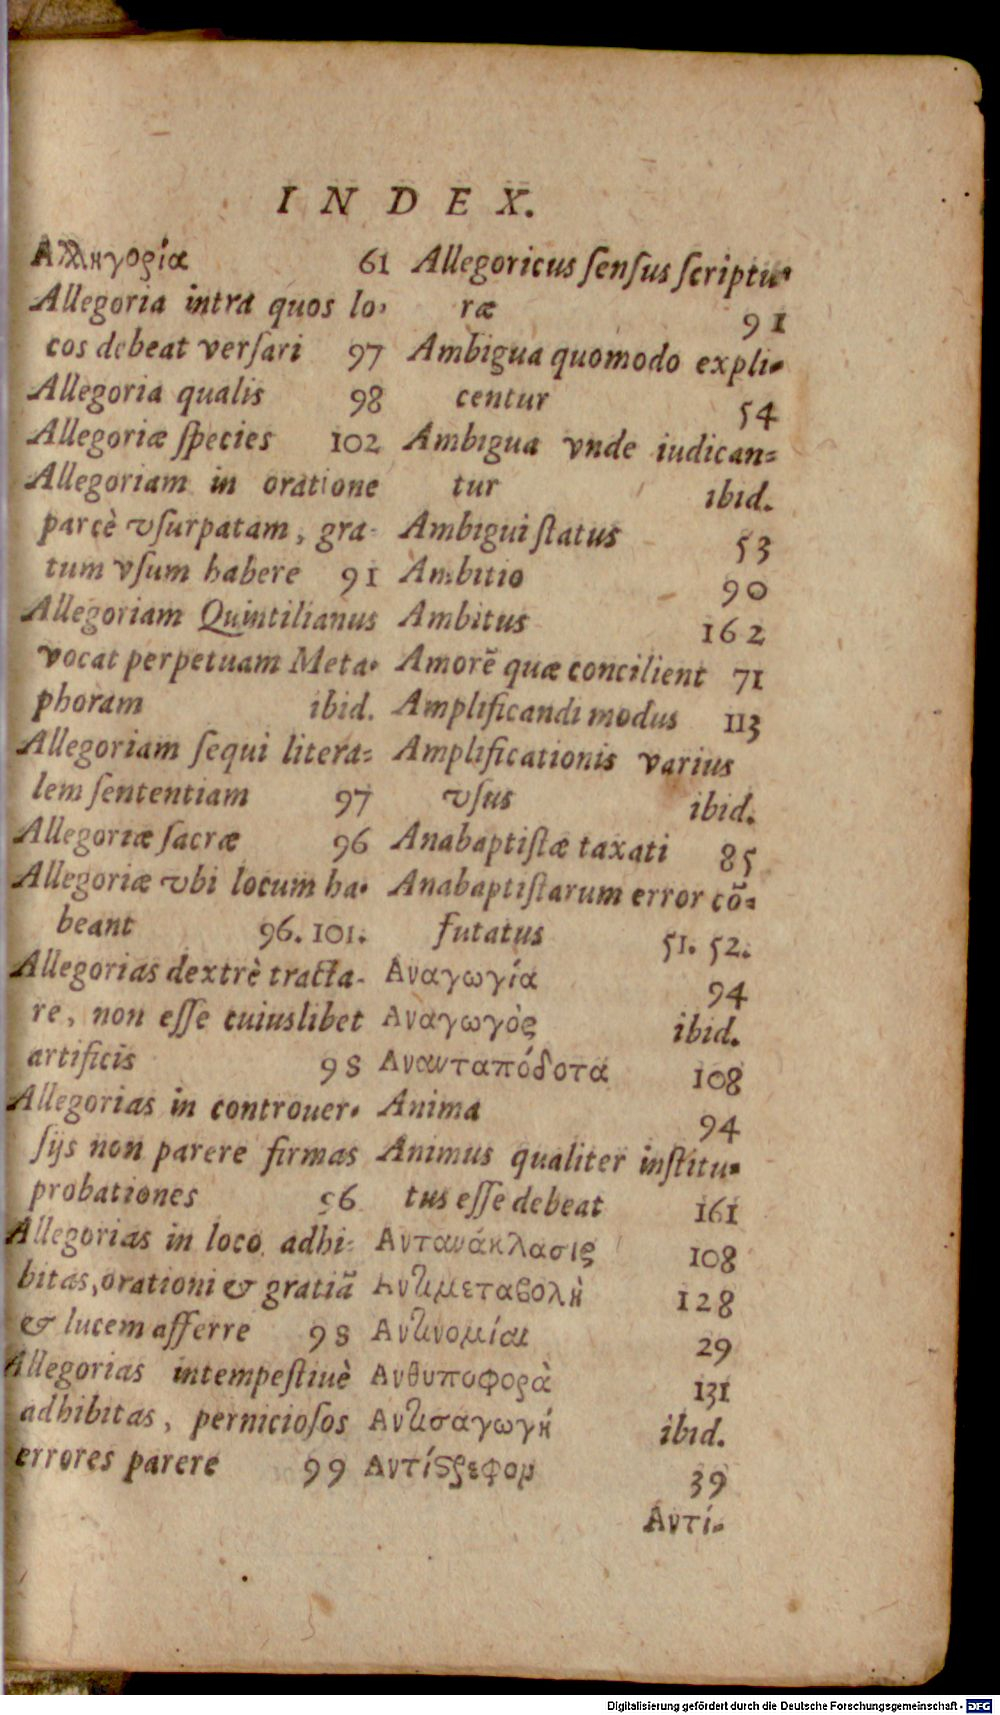 INDEX.
Αλληγορία 61
Allegoria intra quos lo-
cos debeat versari 97
Allegoria qualis 98
Allegoriæ ſpecies 102
Allegoriam in oratione
parcè vſurpatam, gra-
tum vſum habere 91
Allegoriam Quintilianus
vocat perpetuam Meta-
phoram ibid.
Allegoriam ſequi litera-
lem ſententiam 97
Allegoriæ ſacræ 96
Allegoriæ vbi locum ha-
beant 96. 101.
Allegorias dextrè tracta-
re, non eſſe cuiuslibet
artificis 98
Allegorias in controuer-
ſijs non parere firmas
probationes 96
Allegorias in loco adhi-
bitas, orationi & gratiã
& lucem afferre 98
Allegorias intempeſtiuè
adhibitas, pernicioſos
errores parere 99
Allegoricus ſenſus ſcriptu-
ræ 91
Ambigua quomodo expli-
centur 54
Ambigua vnde iudican-
tur ibid.
Ambigui ſtatus 53
Ambitio 90
Ambitus 162
Amorẽ quæ concilient 71
Amplificandi modus 113
Amplificationis varius
vſus ibid.
Anabaptiſtæ taxati 85
Anabaptiſtarum error cõ-
futatus 51. 52.
Αναγωγία 94
Αναγωγὸς ibid.
Ανανταπόδοτα 108
Anima 94
Animus qualiter inſtitu-
tus eſſe debeat 161
Αντανάκλασις 108
Αντιμεταβολὴ 128
Αντινομίαι 29
Ανθυποφορὰ 131
Αντισαγωγή ibid.
Αντίςρεφον 39
Αντί-
Digitalisierung gefördert durch die Deutsche Forschungsgemeinschaft - DFG